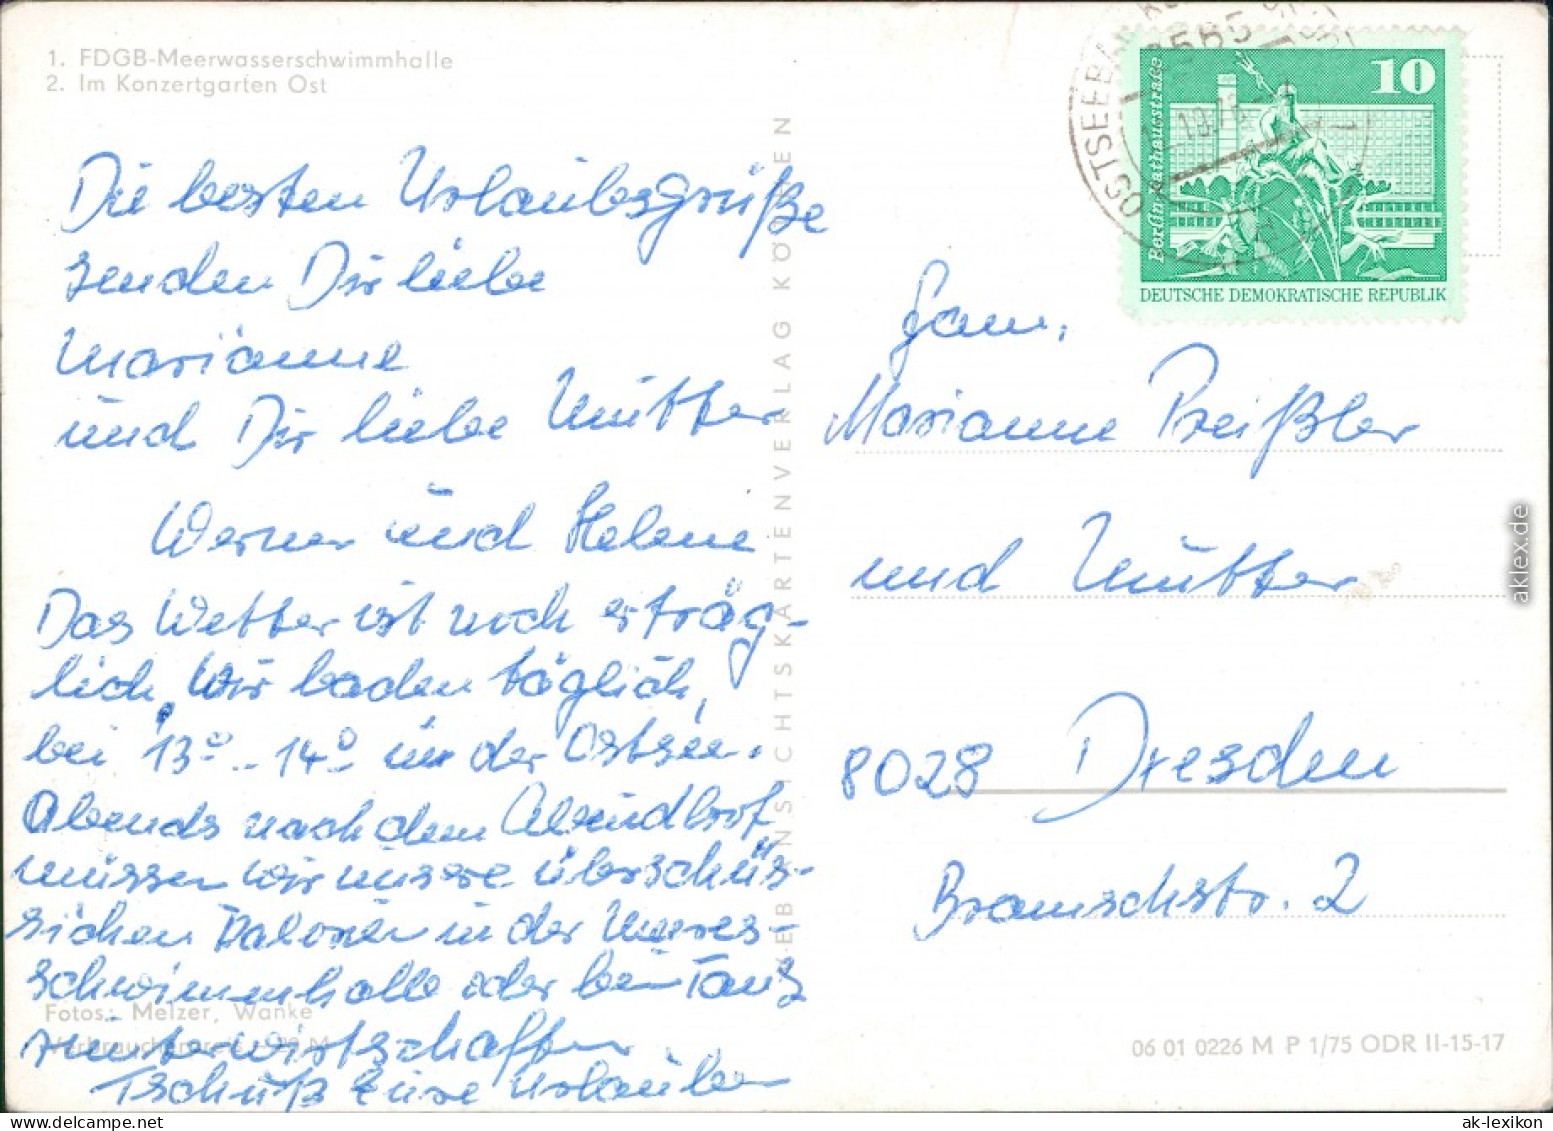 1. FDGB-Meerwasserschwimmhalle
2. Im Konzertgarten Ost
Die besten Urlaubsgrüße
senden Dir liebe
Marianne
und Dir liebe Mutter
Werner und Helene
Das Wetter ist noch erträg-
lich, Wir baden täglich,
bei 13° - 14° in der Ostsee.
Abends nach dem Abendbrot
müssen wir unsere überschüs-
sichen Kalorien in der Meeres-
schwimmhalle oder bei Tanz
runterwirtschaften.
Tschüß Eure Urlauber
Fotos: Melzer, Wanke
VEB ANSICHTSKARTENVERLAG KÖTHEN
OSTSEEBAD
2565
10
Berlin Rathausstraße
DEUTSCHE DEMOKRATISCHE REPUBLIK
Fam.
Marianne Preißler
und Mutter
8028 Dresden
Bramschstr. 2
06 01 0226 M P 1/75 ODR II-15-17
aklex.de
ak-lexikon